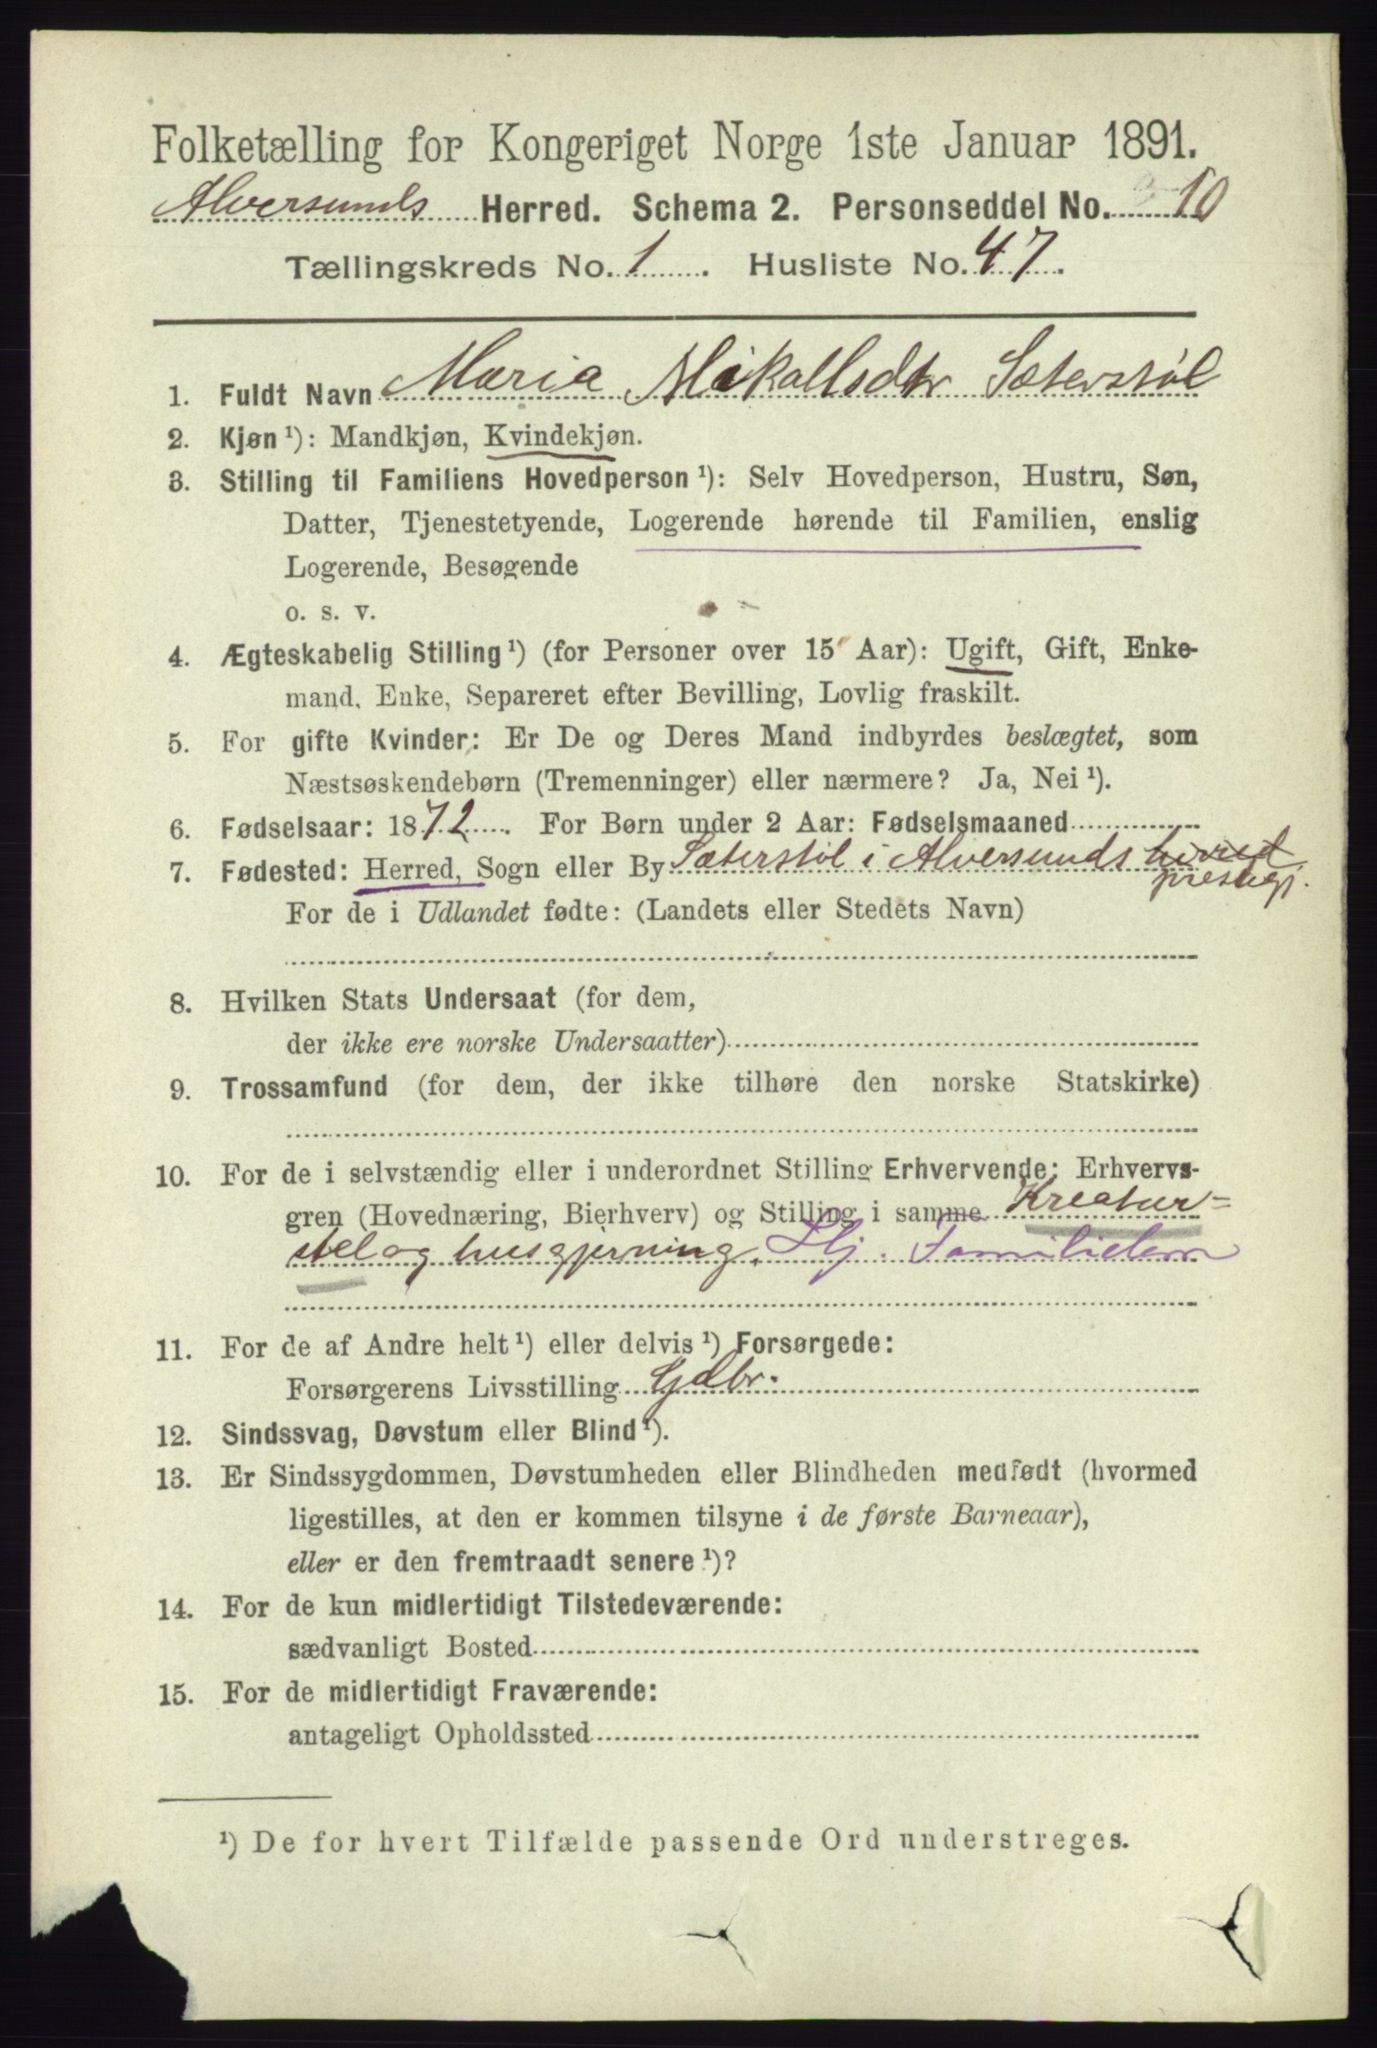 Folketælling for Kongeriget Norge 1ste Januar 1891.
Alversunds Herred. Schema 2. Personseddel No. 10
Tællingskreds No. 1. Husliste No. 47.
1. Fuldt Navn Maria Mikallsdtr Sæterstøl
2. Kjøn ¹): Mandkjøn, Kvindekjøn.
3. Stilling til Familiens Hovedperson ¹): Selv Hovedperson, Hustru, Søn,
Datter, Tjenestetyende, Logerende hørende til Familien, enslig
Logerende, Besøgende
o. s. v.
4. Ægteskabelig Stilling ¹) (for Personer over 15 Aar): Ugift, Gift, Enke-
mand, Enke, Separeret efter Bevilling, Lovlig fraskilt.
5. For gifte Kvinder: Er De og Deres Mand indbyrdes beslægtet, som
Næstsøskendebørn (Tremenninger) eller nærmere? Ja, Nei ¹).
6. Fødselsaar: 1872. For Børn under 2 Aar: Fødselsmaaned
7. Fødested: Herred, Sogn eller By Sæterstøl i Alversunds herred
prestegj.
For de i Udlandet fødte: (Landets eller Stedets Navn)
8. Hvilken Stats Undersaat (for dem,
der ikke ere norske Undersaatter)
9. Trossamfund (for dem, der ikke tilhøre den norske Statskirke)
10. For de i selvstændig eller i underordnet Stilling Erhvervende: Erhvervs-
gren (Hovednæring, Bierhverv) og Stilling i samme Kreatur=
stel og husgjerning.
11. For de af Andre helt ¹) eller delvis ¹) Forsørgede:
Forsørgerens Livsstilling Gdbr.
12. Sindssvag, Døvstum eller Blind ¹).
13. Er Sindssygdommen, Døvstumheden eller Blindheden medfødt (hvormed
ligestilles, at den er kommen tilsyne i de første Barneaar),
eller er den fremtraadt senere ¹)?
14. For de kun midlertidigt Tilstedeværende:
sædvanligt Bosted
15. For de midlertidigt Fraværende:
antageligt Opholdssted
¹) De for hvert Tilfælde passende Ord understreges.